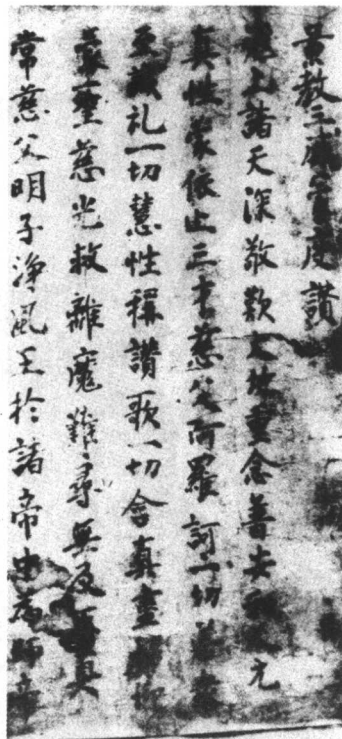 景教三威蒙度讚
無上諸天深敬歎大地重念普安和元
真性蒙依止三才慈父阿羅訶一切善眾
至誠礼一切慧性稱讚歌一切含真盡歸仰
蒙聖慈光救離魔難尋無及正真
常慈父明子淨風王於諸帝中為師帝